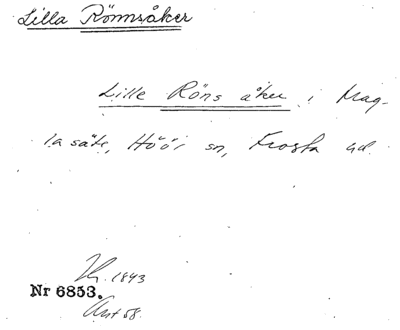 Lilla Rönnsåker
Lille Röns åker i Mag-
lasäte, Höör sn, Frosta hd.
1843
Nr 6853.
Ant 58.